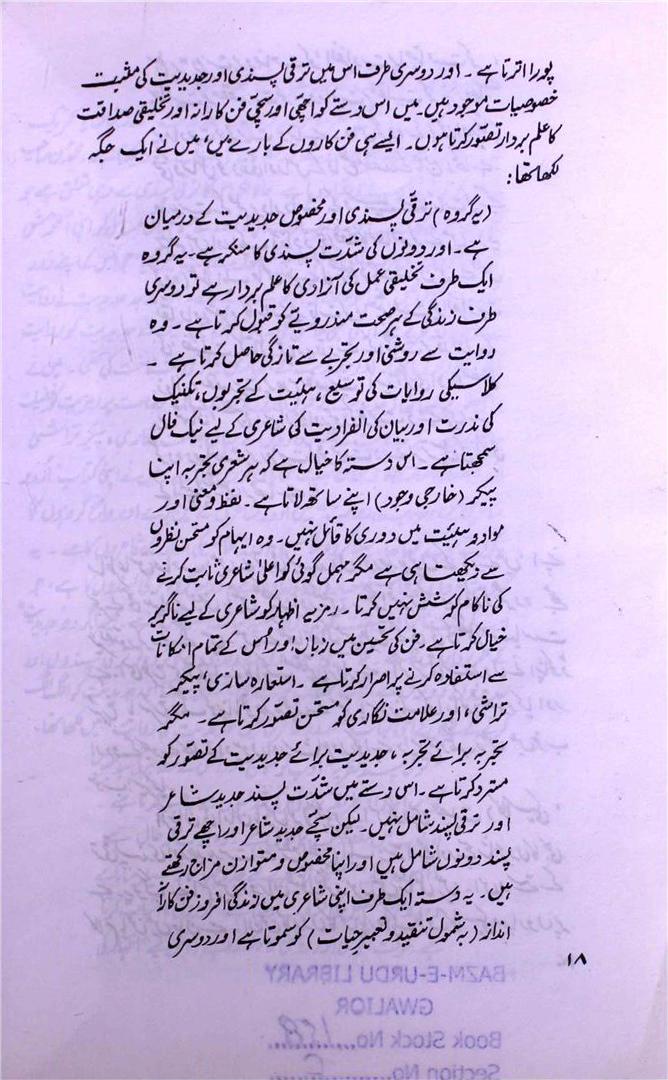 پورا اترتا ہے ۔ اور دوسری طرف اس میں ترقی پسندی اور جدیدیت کی مثبت
خصوصیات موجود ہیں۔ میں اس دستے کو اچھی اور سچی فن کارانہ اور تخلیقی صداقت
کا علم بردار تصوّر کرتا ہوں۔ ایسے ہی فن کاروں کے بارے میں، میں نے ایک جگہ
لکھا تھا:
(یہ گروہ) ترقی پسندی اور مخصوص جدیدیت کے درمیان
ہے۔ اور دونوں کی شدّت پسندی کا منکر ہے۔ یہ گروہ
ایک طرف تخلیقی عمل کی آزادی کا علم بردار ہے تو دوسری
طرف زندگی کے ہر صحت مند رویے کو قبول کرتا ہے ۔ وہ
روایت سے روشنی اور تجربے سے تازگی حاصل کرتا ہے ۔
کلاسیکی روایات کی توسیع ، ہیئیت کے تجربوں، تکنیک
کی ندرت اور بیان کی انفرادیت کی شاعری کے لیے نیک فال
سمجھتا ہے۔ اس دستہ کا خیال ہے کہ ہر شعری تجربہ اپنا
پیکر (خارجی وجود) اپنے ساتھ لاتا ہے۔ لفظ و معنی اور
مواد و ہیئیت میں دوری کا قائل نہیں۔ وہ ابہام کو مستحسن نظروں
سے دیکھتا ہی ہے مگر مہمل گوئی کو اعلیٰ شاعری ثابت کرنے
کی ناکام کوشش نہیں کرتا ۔ رمزیہ اظہار کو شاعری کے لیے ناگزیر
خیال کرتا ہے۔ فن کی تحسین میں زبان اور اُس کے تمام امکانات
سے استفادہ کرنے پر اصرار کرتا ہے ۔ استعارہ سازی، پیکر
تراشی ، اور علامت نگاری کو مستحسن تصوّر کرتا ہے ۔ مگر
تجربہ برائے تجربہ ، جدیدیت برائے جدیدیت کے تصوّر کو
مسترد کرتا ہے۔ اس دستے میں شدّت پسند جدید شاعر
اور ترقی پسند شامل نہیں۔ لیکن سچّے جدید شاعر اور اچھے ترقی
پسند دونوں شامل ہیں اور اپنا مخصوص و متوازن مزاج رکھتے
ہیں۔ یہ دستہ ایک طرف اپنی شاعری میں زندگی افروز فن کارانہ
انداز (بہ شمول تنقید و تعمیر حیات) کو سموتا ہے اور دوسری
۱۸
BAZM-E-URDU LIBRARY
GWALIOR
Book Stock No.
Section No.